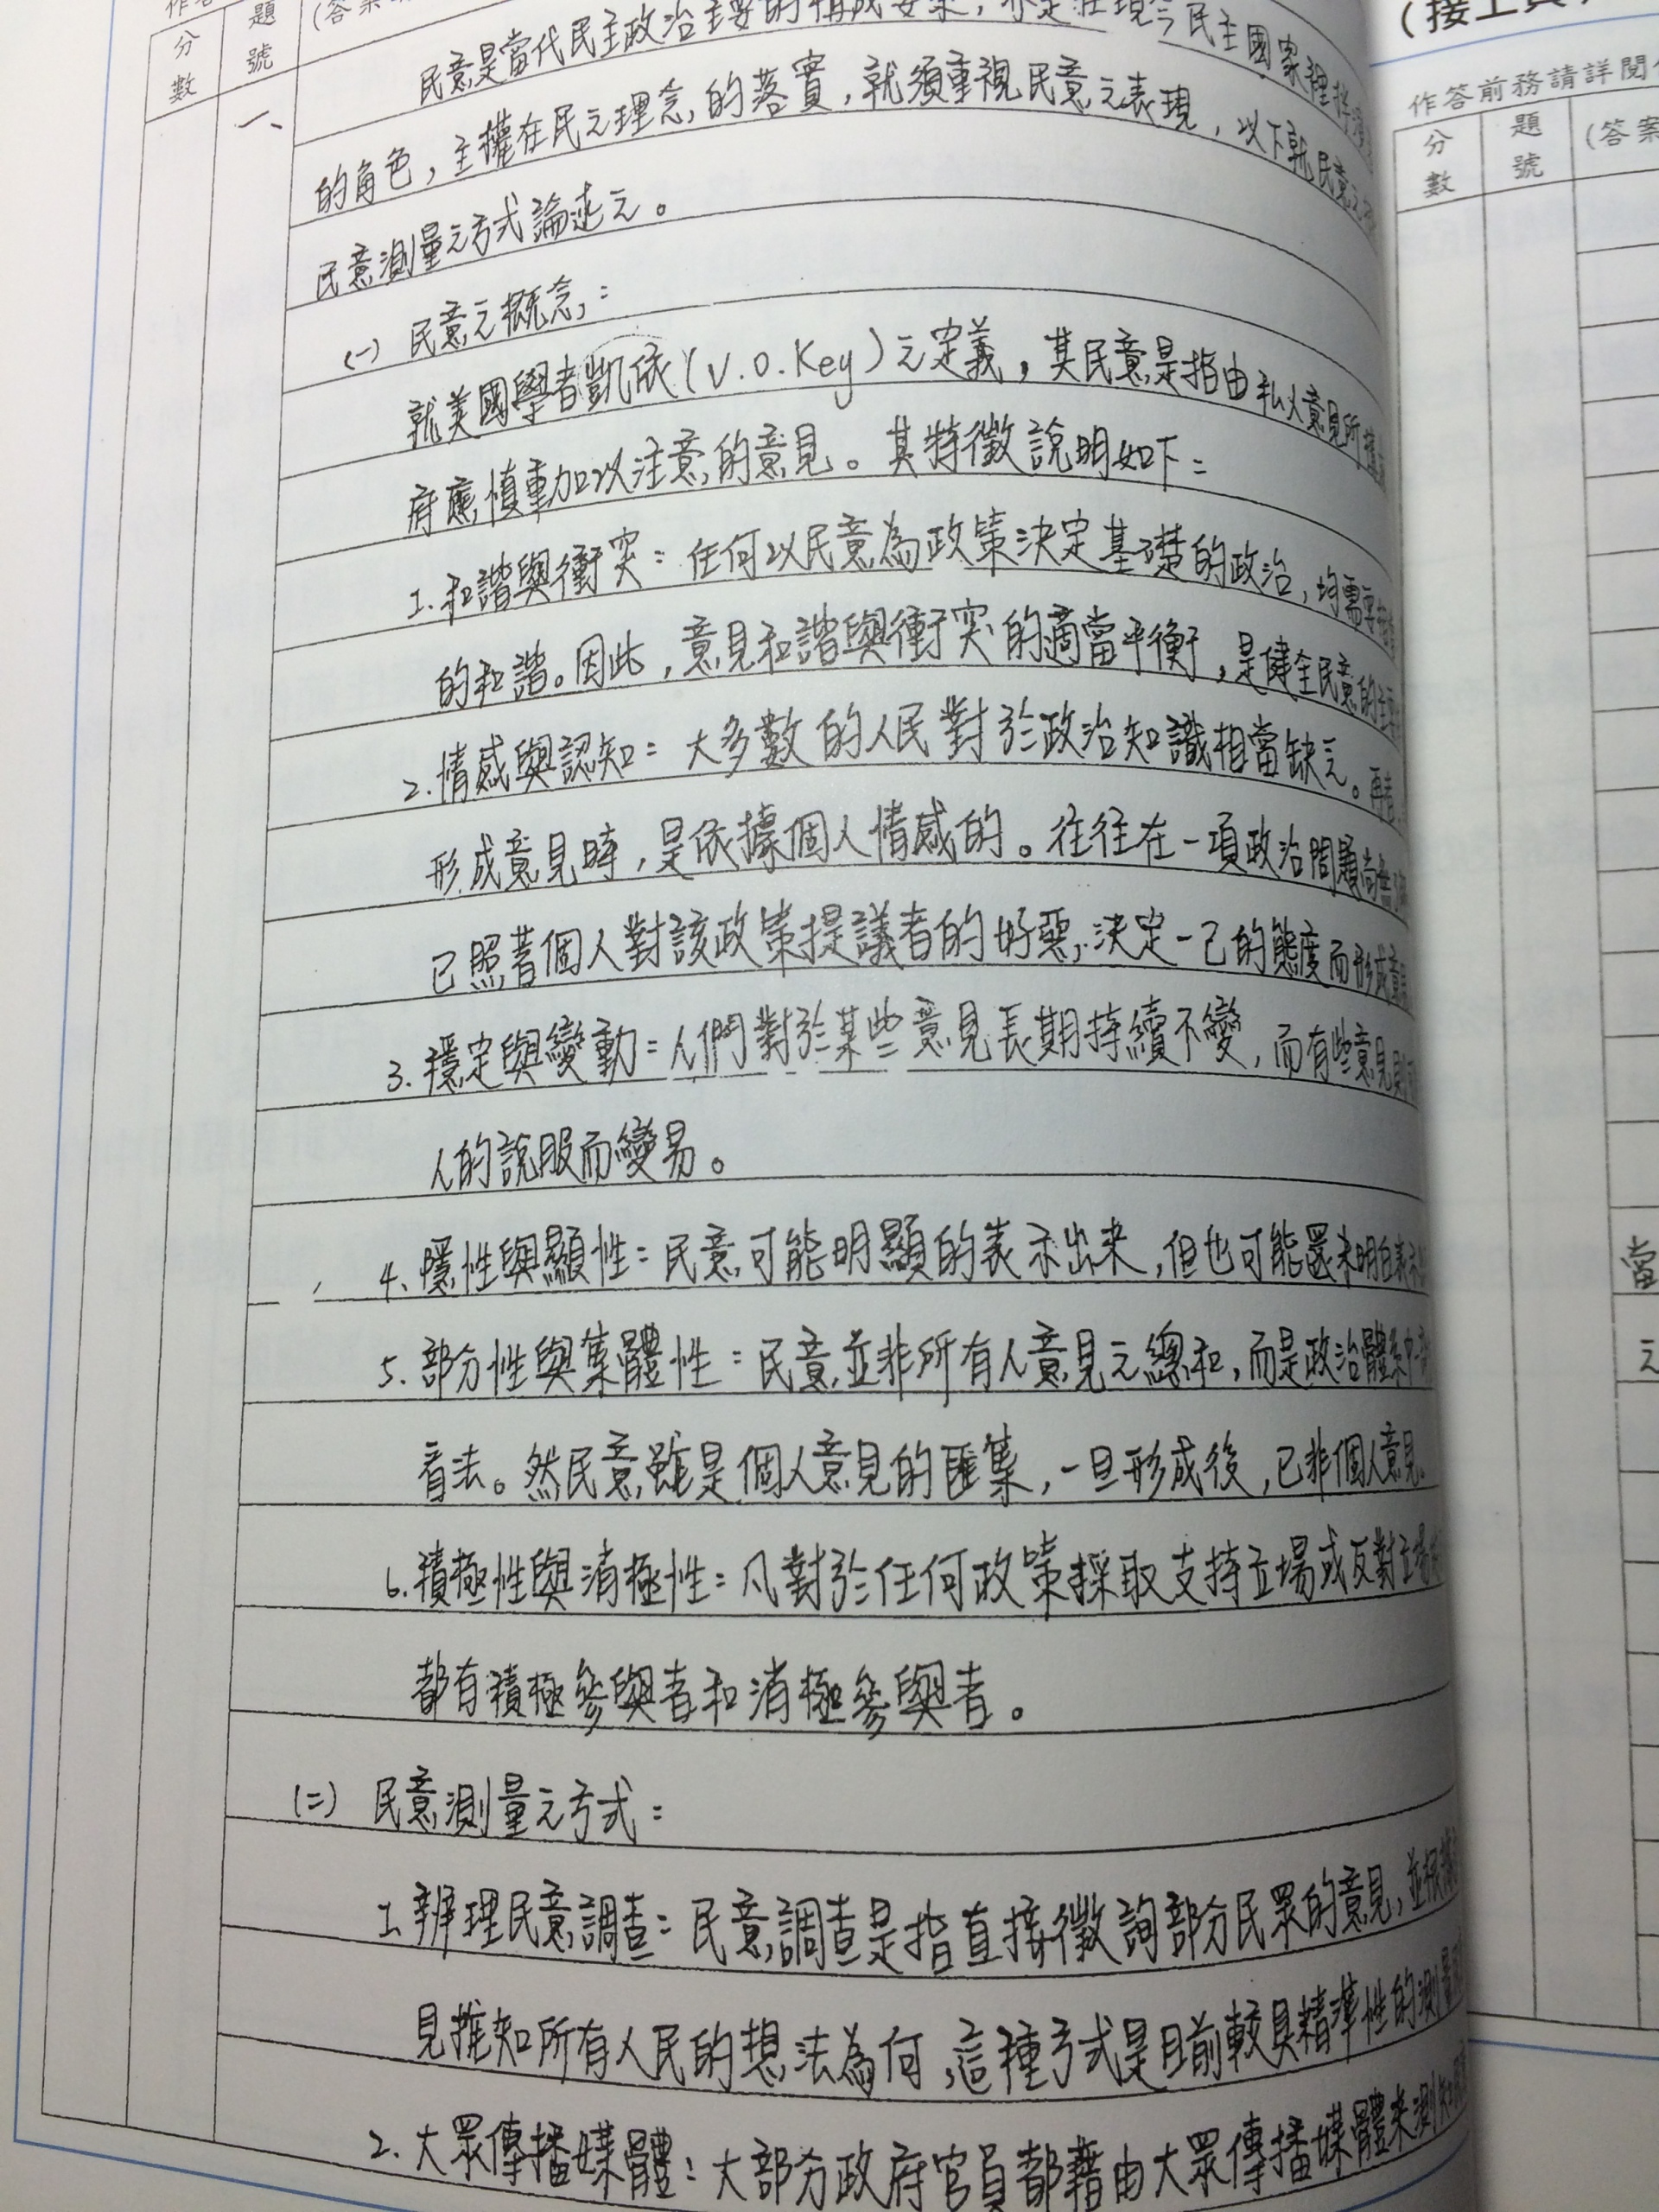 分數
題號
(答案
一、
民意是當代民主政治主要的構成要素，亦是在現今民主國家裡
的角色，主權在民之理念的落實，就須重視民意之表現，以下就民意之
民意測量之方式論述之。
(一) 民意之概念：
就美國學者凱依(V.O.Key)之定義，其民意是指由私人意見所
府應慎重加以注意的意見。其特徵說明如下：
1. 和諧與衝突：任何以民意為政策決定基礎的政治，均需要
的和諧。因此，意見和諧與衝突的適當平衡，是健全民意的主要
2. 情感與認知：大多數的人民對於政治知識相當缺乏。再者
形成意見時，是依據個人情感的。往往在一項政治問題尚無
已照著個人對該政策提議者的好惡，決定一己的態度而形成意見
3. 穩定與變動：人們對於某些意見長期持續不變，而有些意見則
人的說服而變易。
4. 隱性與顯性：民意可能明顯的表示出來，但也可能還未明白表示
5. 部分性與集體性：民意並非所有人意見之總和，而是政治體系中
看法。然民意雖是個人意見的匯集，一旦形成後，已非個人意見。
6. 積極性與消極性：凡對於任何政策採取支持立場或反對立場
都有積極參與者和消極參與者。
(二) 民意測量之方式：
1. 辦理民意調查：民意調查是指直接徵詢部分民眾的意見，並根據
見推知所有人民的想法為何，這種方式是目前較具精準性的測量
2. 大眾傳播媒體：大部分政府官員都藉由大眾傳播媒體來測知
作答前務請詳閱
分數
題號
(答案
當
之